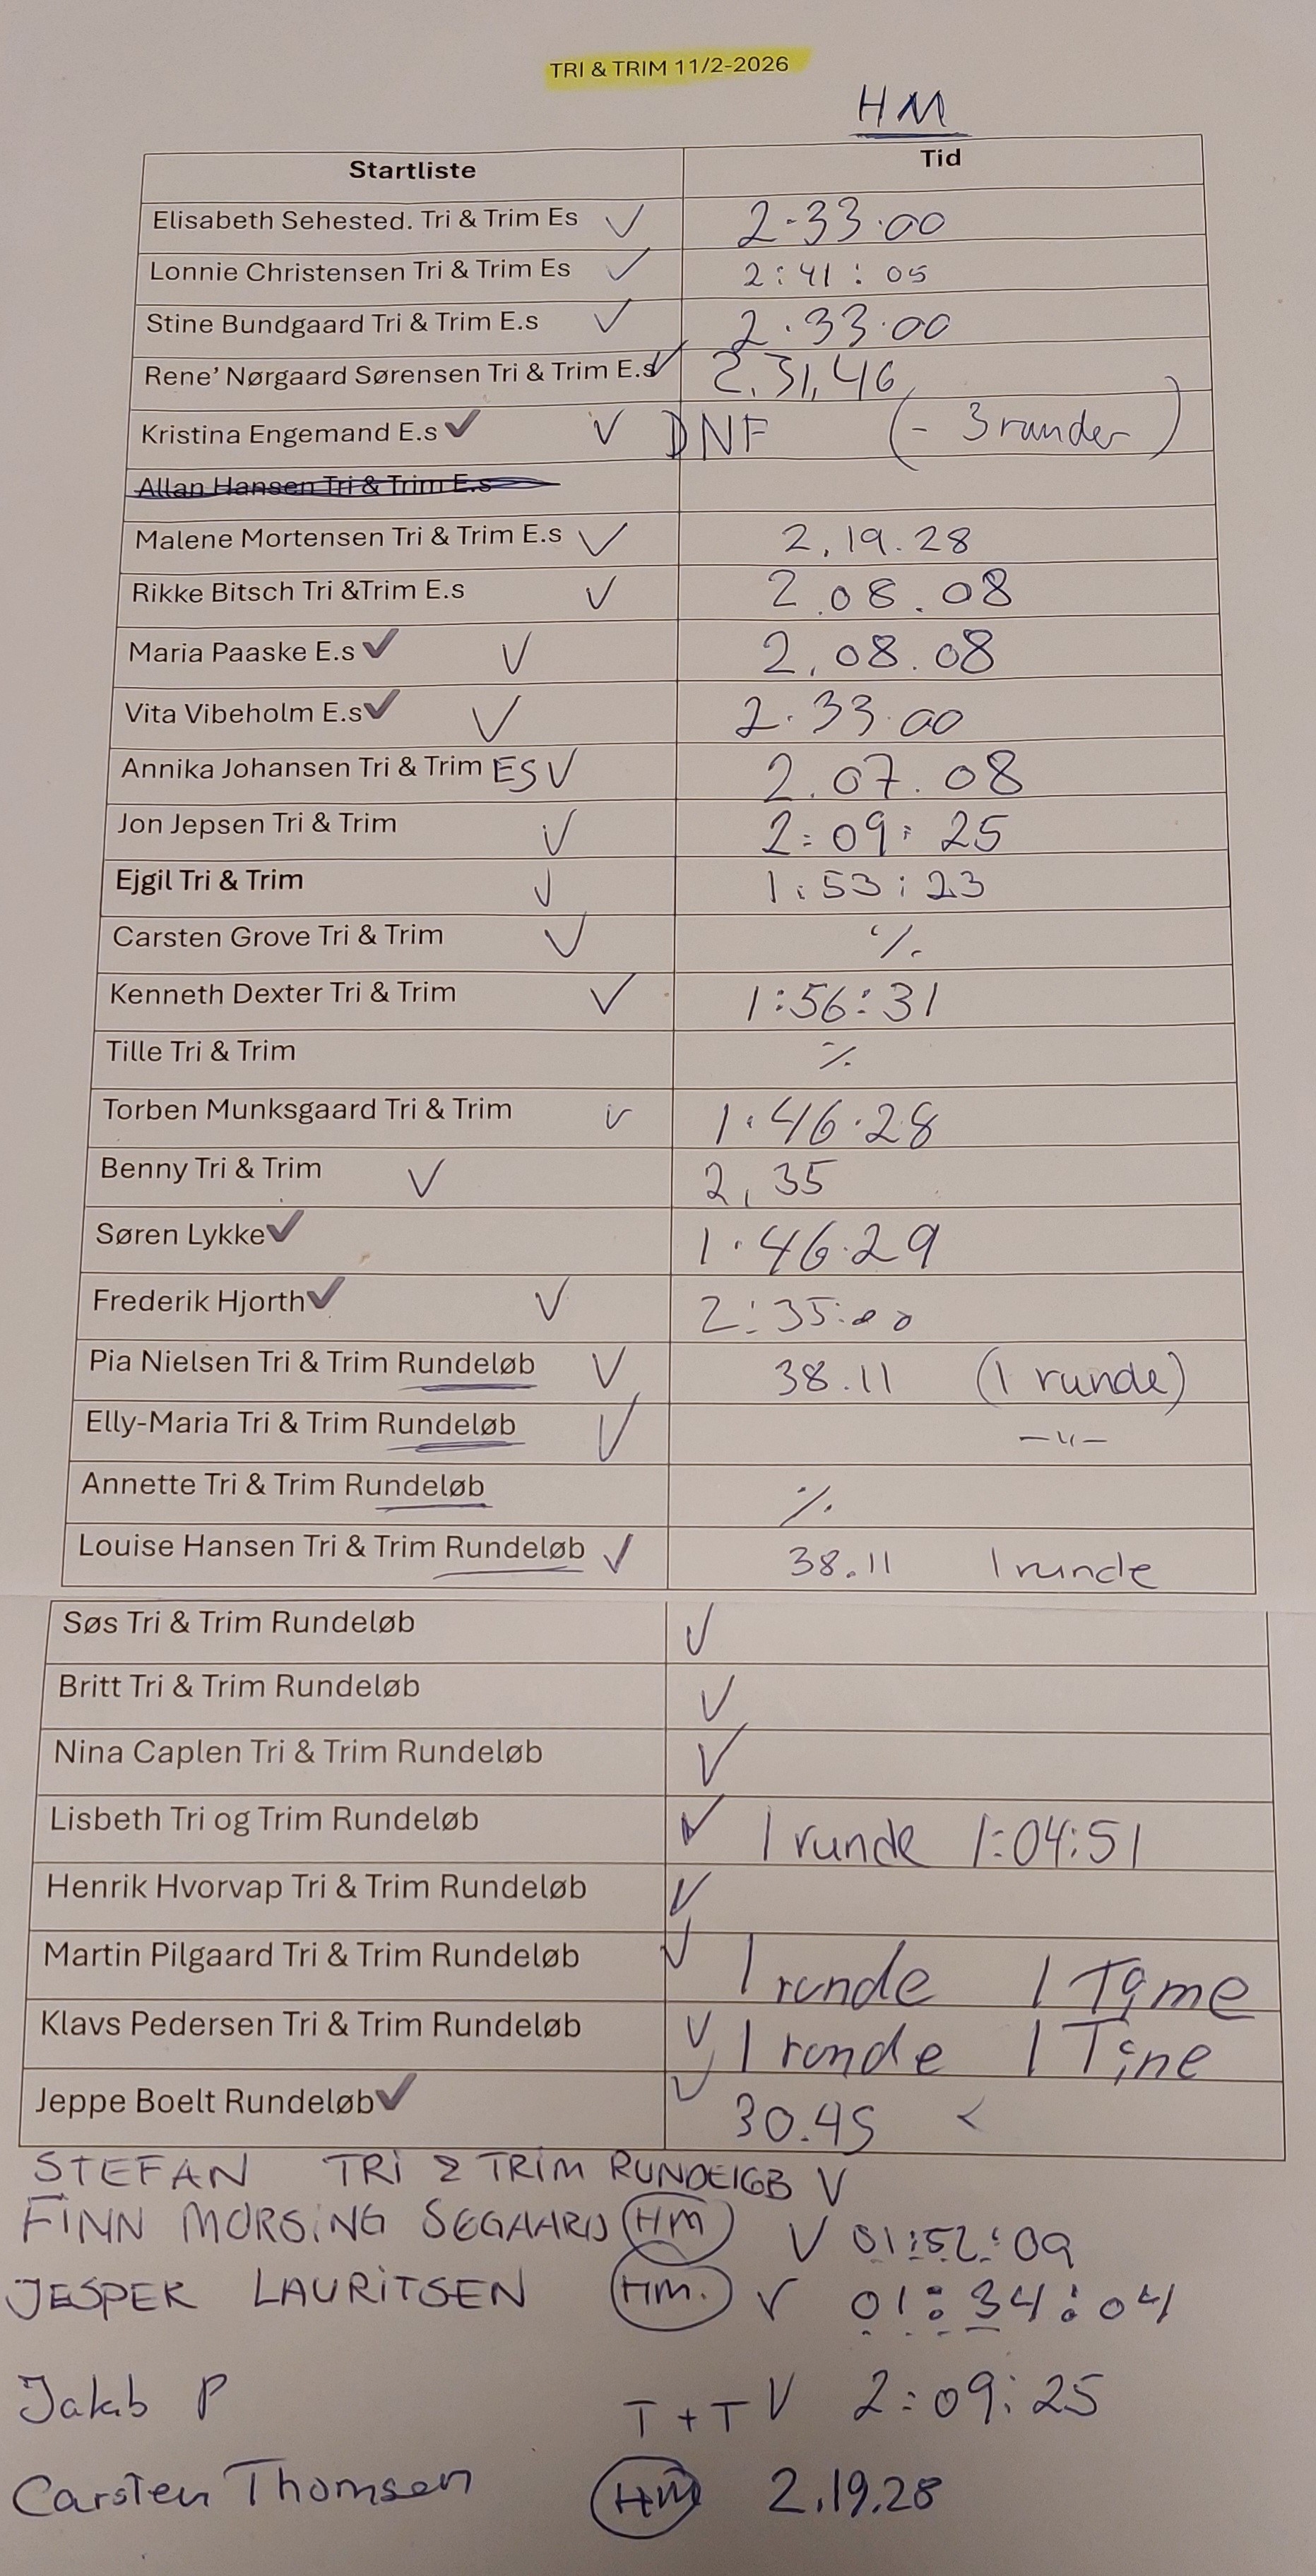 TRI & TRIM 11/2-2026
HM
Startliste Tid
Elisabeth Sehested. Tri & Trim Es ✓ 2.33.00
Lonnie Christensen Tri & Trim Es ✓ 2:41:05
Stine Bundgaard Tri & Trim E.s ✓ 2.33.00
Rene’ Nørgaard Sørensen Tri & Trim E.s ✓ 2.31,46
Kristina Engemand E.s ✔ ✓ DNF (- 3 runder)
Allan Hansen Tri & Trim E.s
Malene Mortensen Tri & Trim E.s ✓ 2,19.28
Rikke Bitsch Tri &Trim E.s ✓ 2.08.08
Maria Paaske E.s ✔ ✓ 2,08.08
Vita Vibeholm E.s ✔ ✓ 2.33.00
Annika Johansen Tri & Trim ES ✓ 2.07.08
Jon Jepsen Tri & Trim ✓ 2:09:25
Ejgil Tri & Trim ✓ 1:53:23
Carsten Grove Tri & Trim ✓ ٪
Kenneth Dexter Tri & Trim ✓ 1:56:31
Tille Tri & Trim ٪
Torben Munksgaard Tri & Trim ✓ 1.46.28
Benny Tri & Trim ✓ 2,35
Søren Lykke ✔ 1.46.29
Frederik Hjorth ✔ ✓ 2:35:00
Pia Nielsen Tri & Trim Rundeløb ✓ 38.11 (1 runde)
Elly-Maria Tri & Trim Rundeløb ✓ —"—
Annette Tri & Trim Rundeløb ٪
Louise Hansen Tri & Trim Rundeløb ✓ 38.11 1 runde
Søs Tri & Trim Rundeløb ✓
Britt Tri & Trim Rundeløb ✓
Nina Caplen Tri & Trim Rundeløb ✓
Lisbeth Tri og Trim Rundeløb ✓ 1 runde 1:04:51
Henrik Hvorvap Tri & Trim Rundeløb ✓
Martin Pilgaard Tri & Trim Rundeløb ✓ 1 runde 1
Klavs Pedersen Tri & Trim Rundeløb ✓ 1 runde 1
Jeppe Boelt Rundeløb ✔ ✓ 30.45 <
STEFAN TRI & TRIM RUNDELØB ✓
FINN MORSING HM ✓ 01:52:09
JESPER LAURITSEN HM. ✓ 01:34:04
Jakob P T+T ✓ 2:09:25
Carsten Thomsen HM 2.19.28